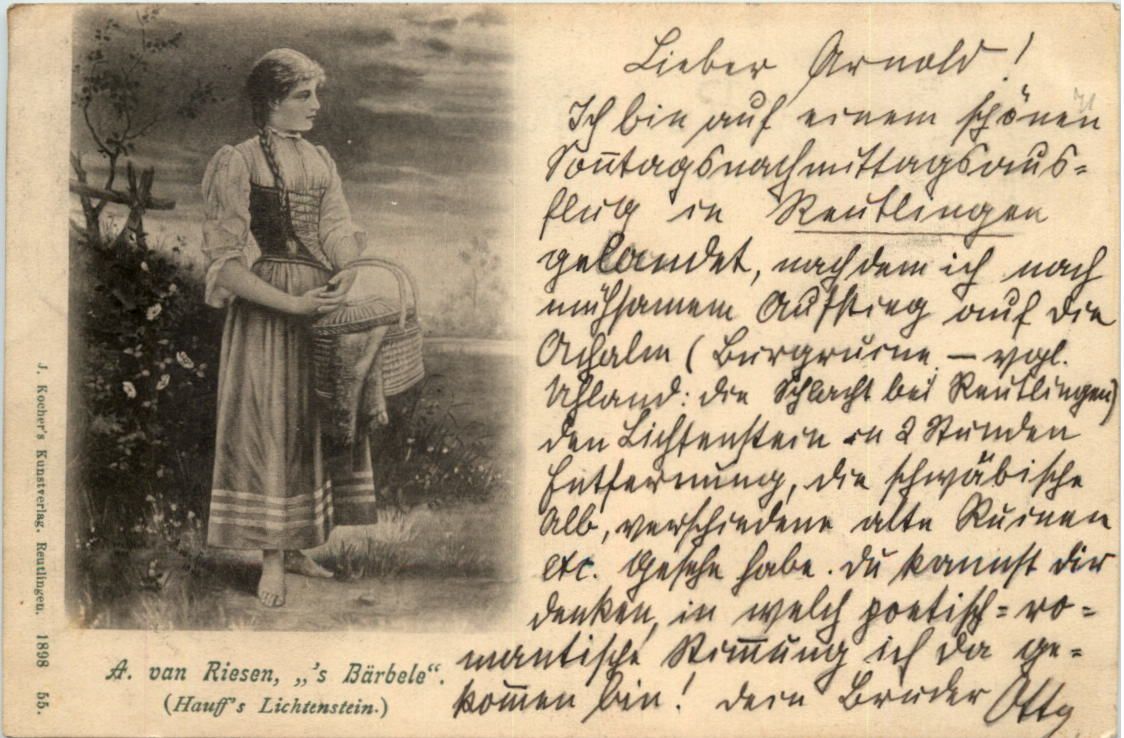 Lieber Arnold!
Ich bin auf einem schönen
Son̅tagsnachmittagsaus=
flug in Reutlingen
gelandet, nachdem ich nach
mühsamem Aufstieg auf die
Achalm (Burgruine – vgl.
Uhland: die Schlacht bei Reutlingen)
den Lichtenstein in 2 Stunden
Entfernung, die schwäbische
Alb, verschiedene alte Ruinen
etc. gesehe habe. Du kannst dir
denken, in welch poetisch=ro=
mantische Stim̅ung ich da ge=
kom̅en bin! Dein Bruder Otto
A. van Riesen, „'s Bärbele“.
(Hauff's Lichtenstein.)
J. Kocher's Kunstverlag. Reutlingen. 1898 55.